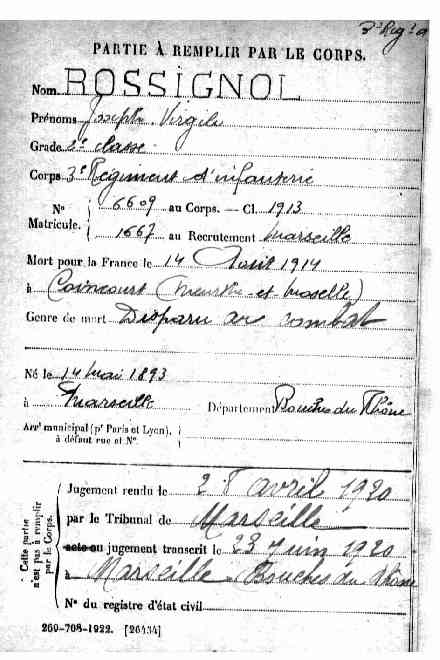 3e Reg
PARTIE À REMPLIR PAR LE CORPS.
Nom ROSSIGNOL
Prénoms Joseph Virgile
Grade 2e classe
Corps 3e Régiment d'infanterie
N° Matricule. { 6609 au Corps. — Cl. 1913
1667 au Recrutement Marseille
Mort pour la France le 14 Août 1914
à Coincourt (Meurthe-et-Moselle)
Genre de mort Disparu au combat
Né le 14 Mai 1893
à Marseille Département Bouches du Rhône
Arrt municipal (pr Paris et Lyon), à défaut rue et N°. {
Cette partie n'est pas à remplir par le Corps. {
Jugement rendu le 28 avril 1920
par le Tribunal de Marseille
acte ou jugement transcrit le 23 Juin 1920
à Marseille Bouches du Rhône
N° du registre d'état civil
260-708-1922. [26434]